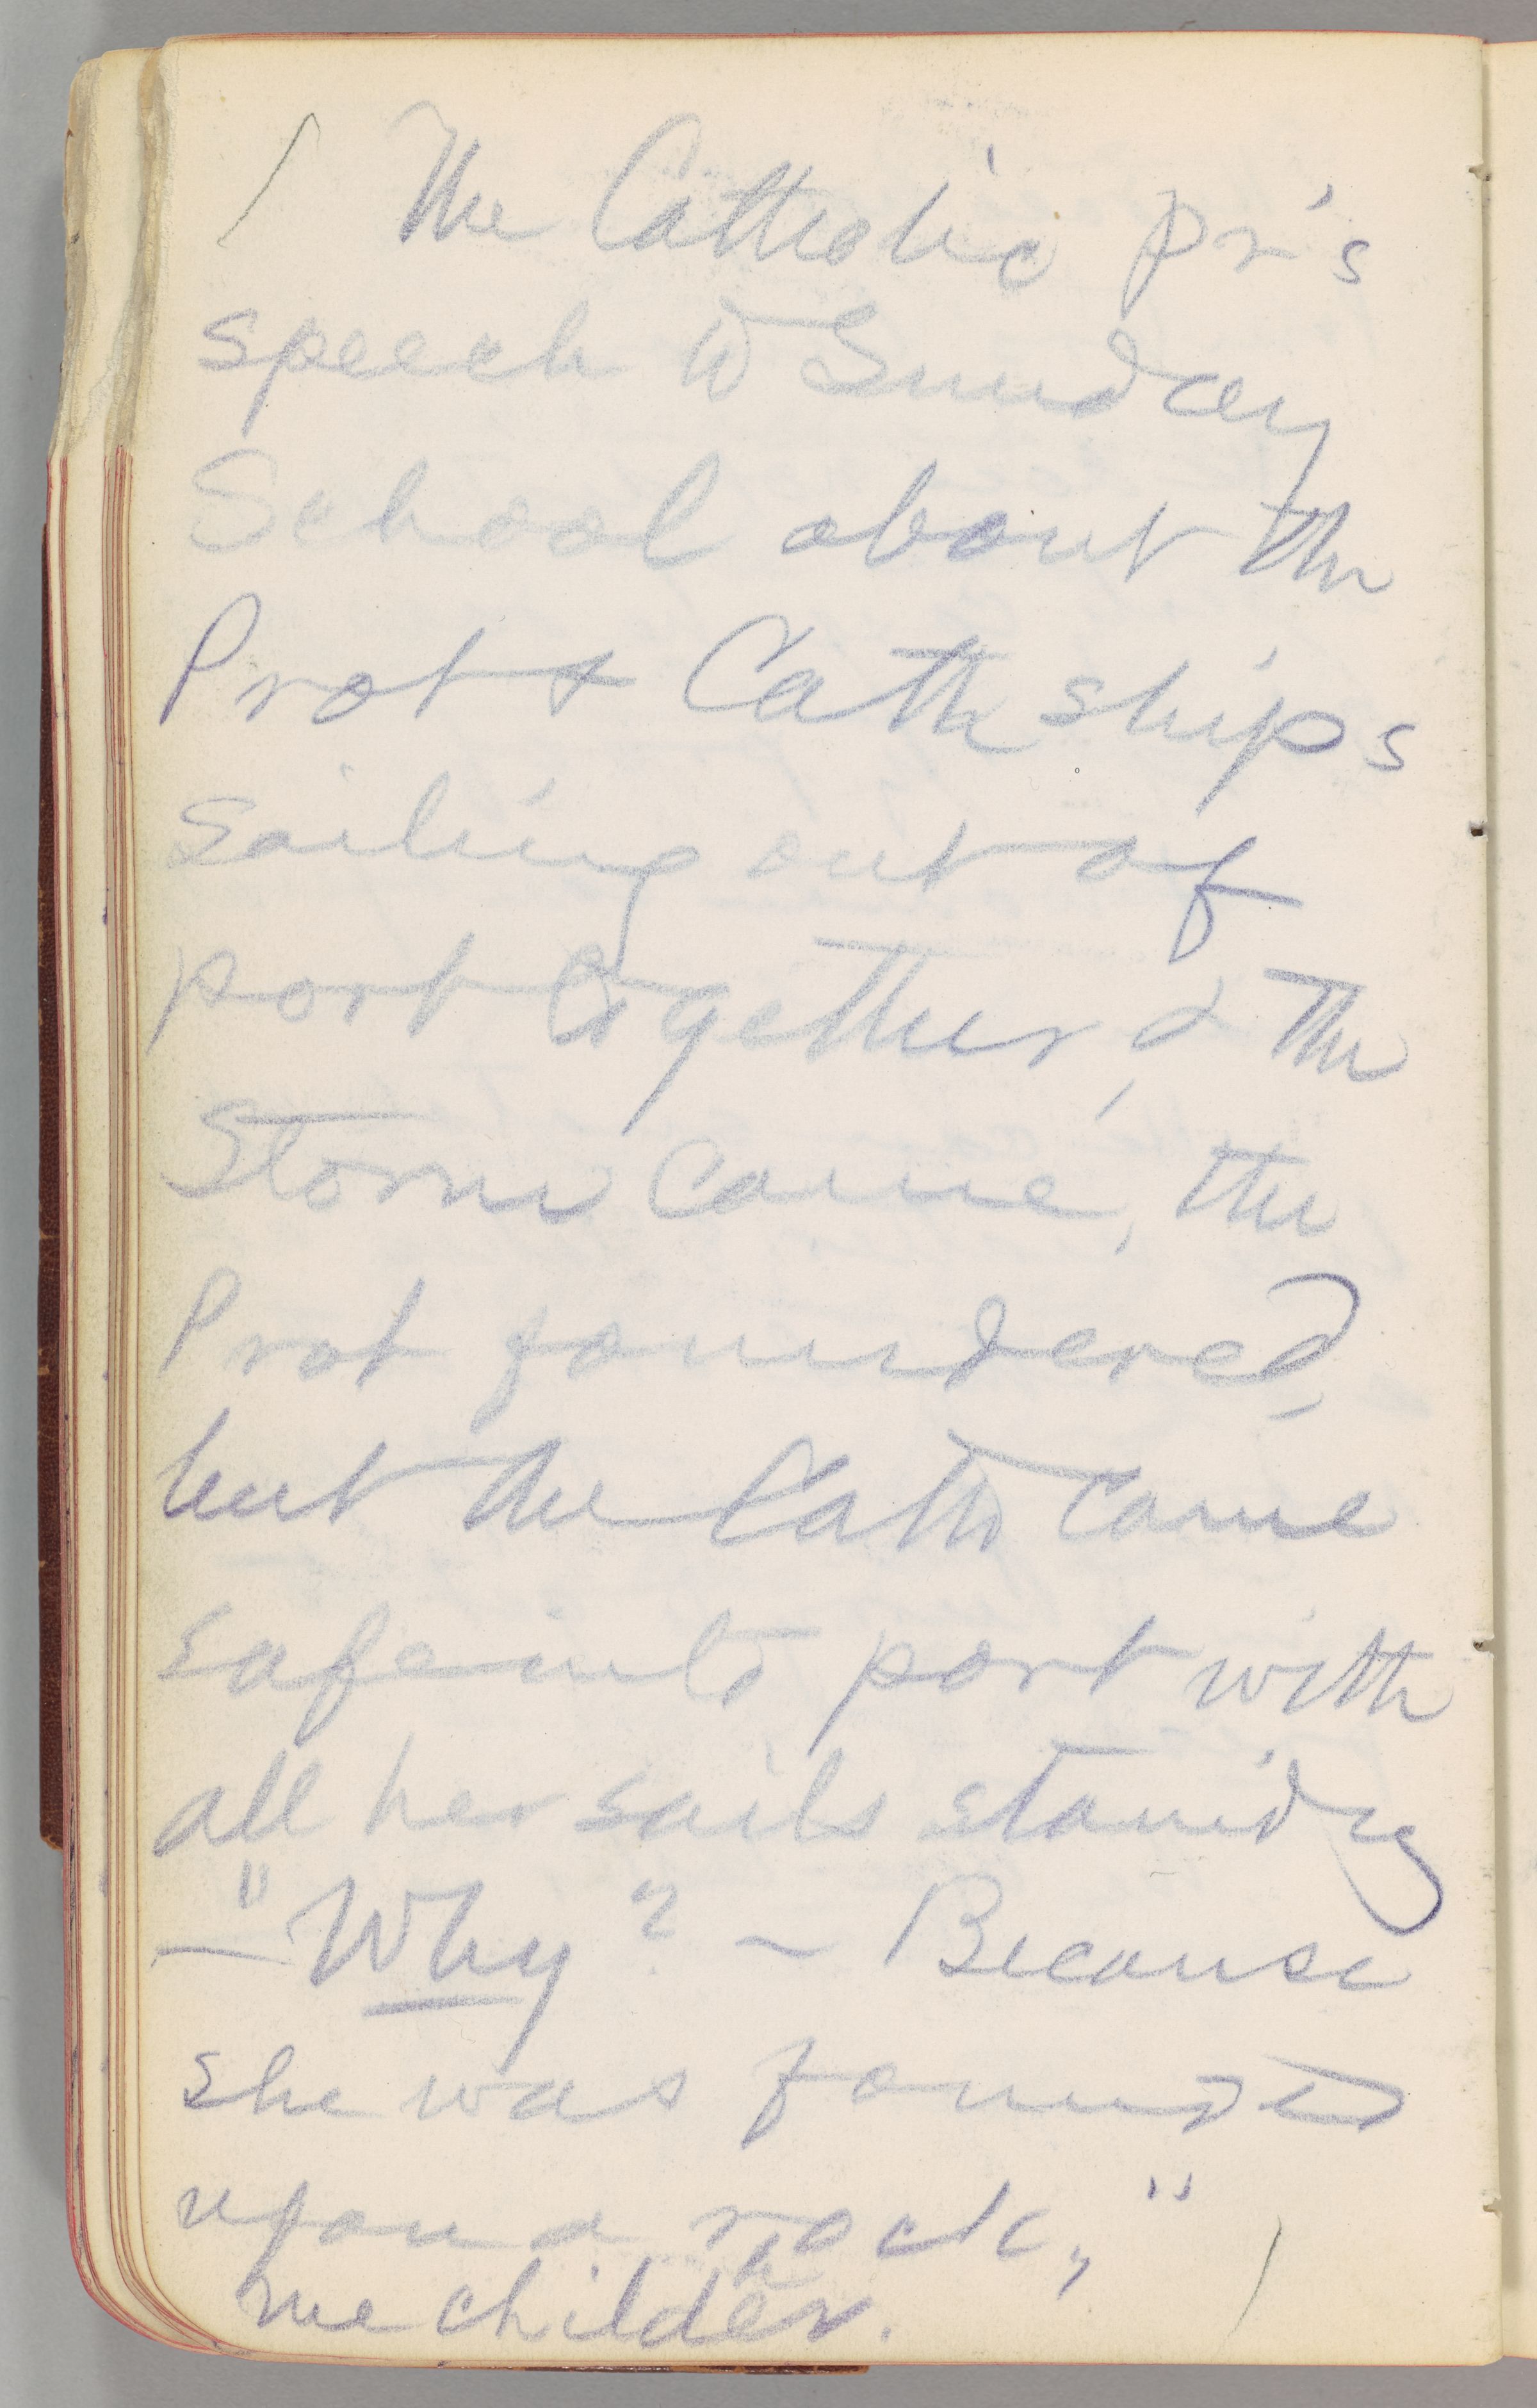 / The Catholic pr's
speech to Sunday
School about the
Prot & Cath ships
sailing out of
port together, & the
storm came, the
Prot foundered,
but the Cath came
safe into port with
all her sails standing
— "Why? — Because
she was founded
upon a rock,"
me childer. /